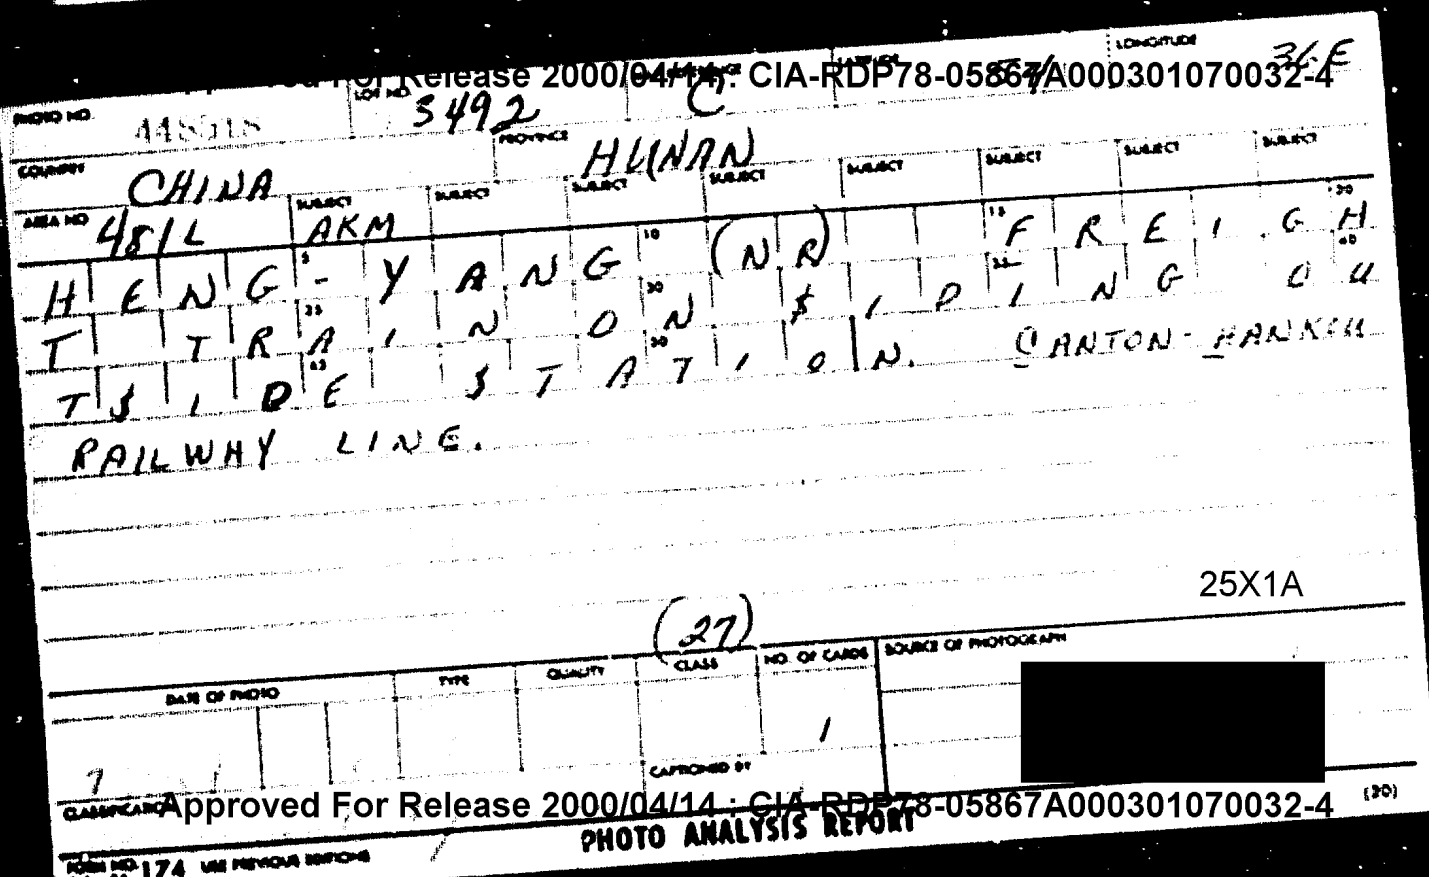 LONGITUDE
Release 2000/04/14 : CIA-RDP78-05867A000301070032-4
36 E
PHOTO NO. 448518 LOT NO. 3492 C
COUNTRY CHINA PROVINCE HUNAN
AREA NO 481L SUBJECT AKM SUBJECT SUBJECT SUBJECT SUBJECT SUBJECT SUBJECT SUBJECT
HENG-YANG (NR) FREIGH
T TRAIN ON $IDING OU
T$IDE $TATION. CANTON-HANKOW
RAILWAY LINE.
25X1A
(27)
DATE OF PHOTO TYPE QUALITY CLASS NO. OF CARDS SOURCE OF PHOTOGRAPH
? 1
CAPTIONED BY
Approved For Release 2000/04/14 : CIA-RDP78-05867A000301070032-4
(30)
PHOTO ANALYSIS REPORT
FORM NO. 174 USE PREVIOUS EDITIONS